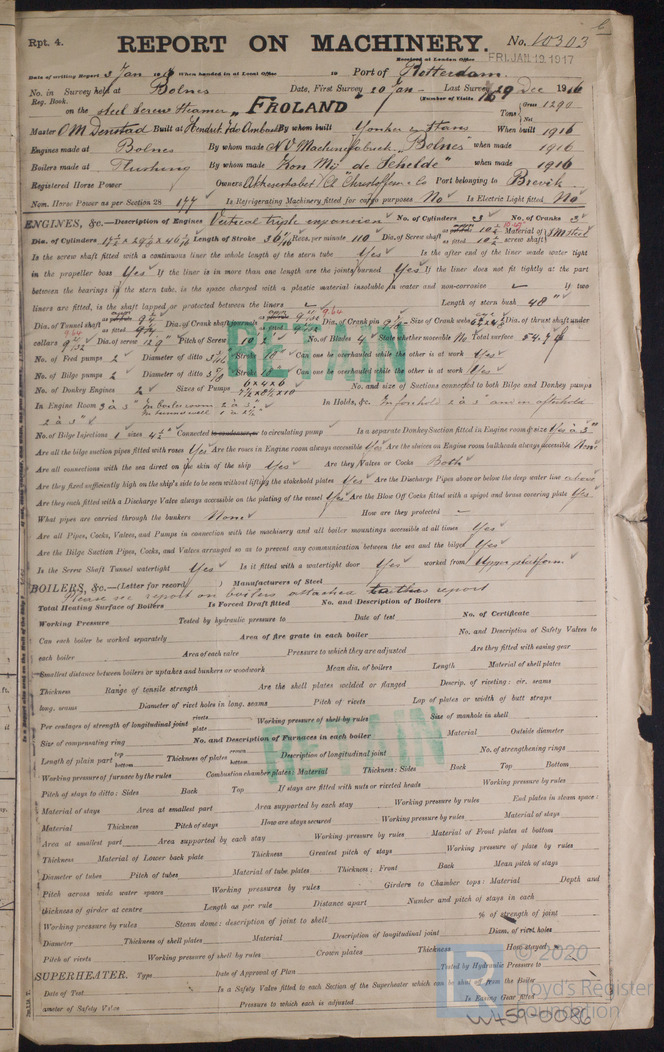 Rpt. 4.
REPORT ON MACHINERY.
No. 10303
Received at London Office
FRI. JAN 19. 1917
Date of writing Report 3 Jan 1917 When handed in at Local Office 19 Port of Rotterdam.
No. in Survey held at Bolnes Date, First Survey 20 Jan Last Survey 29 Dec 1916
Reg. Book. (Number of Visits 16
on the steel Screw Steamer "FROLAND" Tons Gross 1290 Net
Master O M Denstad Built at Hendrik Ido Ambacht By whom built When built 1916
Engines made at Bolnes By whom made N V Machinefabriek "Bolnes" when made 1916
Boilers made at Flushing By whom made Kon Mij "de Schelde" when made 1916
Registered Horse Power Owners Port belonging to Brevik
Nom. Horse Power as per Section 28 177 Is Refrigerating Machinery fitted for cargo purposes No Is Electric Light fitted No
ENGINES, &c.—Description of Engines Vertical triple expansion No. of Cylinders 3 No. of Cranks 3
Dia. of Cylinders Length of Stroke Revs. per minute 110 Dia. of Screw shaft as fitted 10 1/2 Material of screw shaft S M Steel
Is the screw shaft fitted with a continuous liner the whole length of the stern tube Yes Is the after end of the liner made water tight
in the propeller boss Yes If the liner is in more than one length are the joints burned Yes If the liner does not fit tightly at the part
between the bearings in the stern tube, is the space charged with a plastic material insoluble in water and non-corrosive If two
liners are fitted, is the shaft lapped or protected between the liners Length of stern bush 48"
Dia. of Tunnel shaft as fitted Dia. of Crank shaft journals as fitted Dia. of Crank pin Size of Crank webs Dia. of thrust shaft under
collars Dia. of screw Pitch of Screw No. of Blades 4 State whether moveable No Total surface
No. of Feed pumps 2 Diameter of ditto Stroke Can one be overhauled while the other is at work Yes
No. of Bilge pumps 2 Diameter of ditto Stroke Can one be overhauled while the other is at work Yes
No. of Donkey Engines 2 Sizes of Pumps 6 x 4 x 6 No. and size of Suctions connected to both Bilge and Donkey pumps
In Engine Room 2 à 3" In boiler room 2 à 3" In Holds, &c. In forehold 2 à 3" and in afterhold
2 à 3"
No. of Bilge Injections 1 sizes Connected to condenser, or to circulating pump Is a separate Donkey Suction fitted in Engine room & size Yes à 3"
Are all the bilge suction pipes fitted with roses Yes Are the roses in Engine room always accessible Yes Are the sluices on Engine room bulkheads always accessible None
Are all connections with the sea direct on the skin of the ship Yes Are they Valves or Cocks Both
Are they fixed sufficiently high on the ship's side to be seen without lifting the stokehold plates Yes Are the Discharge Pipes above or below the deep water line above
Are they each fitted with a Discharge Valve always accessible on the plating of the vessel Yes Are the Blow Off Cocks fitted with a spigot and brass covering plate Yes
What pipes are carried through the bunkers None How are they protected
Are all Pipes, Cocks, Valves, and Pumps in connection with the machinery and all boiler mountings accessible at all times Yes
Are the Bilge Suction Pipes, Cocks, and Valves arranged so as to prevent any communication between the sea and the bilges Yes
Is the Screw Shaft Tunnel watertight Yes Is it fitted with a watertight door Yes worked from Upper platform
BOILERS, &c.—(Letter for record ) Manufacturers of Steel
Please see report on boilers attached to this report
Total Heating Surface of Boilers Is Forced Draft fitted No. and Description of Boilers
Working Pressure Tested by hydraulic pressure to Date of test No. of Certificate
Can each boiler be worked separately Area of fire grate in each boiler No. and Description of Safety Valves to
each boiler Area of each valve Pressure to which they are adjusted Are they fitted with easing gear
Smallest distance between boilers or uptakes and bunkers or woodwork Mean dia. of boilers Length Material of shell plates
Thickness Range of tensile strength Are the shell plates welded or flanged Descrip. of riveting: cir. seams
long. seams Diameter of rivet holes in long. seams Pitch of rivets Lap of plates or width of butt straps
Per centages of strength of longitudinal joint rivets plate Working pressure of shell by rules Size of manhole in shell
Size of compensating ring No. and Description of Furnaces in each boiler Material Outside diameter
Length of plain part top bottom Thickness of plates crown bottom Description of longitudinal joint No. of strengthening rings
Working pressure of furnace by the rules Combustion chamber plates: Material Thickness: Sides Back Top Bottom
Pitch of stays to ditto: Sides Back Top If stays are fitted with nuts or riveted heads Working pressure by rules
Material of stays Area at smallest part Area supported by each stay Working pressure by rules End plates in steam space:
Material Thickness Pitch of stays How are stays secured Working pressure by rules Material of stays
Area at smallest part Area supported by each stay Working pressure by rules Material of Front plates at bottom
Thickness Material of Lower back plate Thickness Greatest pitch of stays Working pressure of plate by rules
Diameter of tubes Pitch of tubes Material of tube plates Thickness: Front Back Mean pitch of stays
Pitch across wide water spaces Working pressures by rules Girders to Chamber tops: Material Depth and
thickness of girder at centre Length as per rule Distance apart Number and pitch of stays in each
Working pressure by rules Steam dome: description of joint to shell % of strength of joint
Diameter Thickness of shell plates Material Description of longitudinal joint Diam. of rivet holes
Pitch of rivets Working pressure of shell by rules Crown plates Thickness How stayed
SUPERHEATER. Type Date of Approval of Plan Tested by Hydraulic Pressure to
Date of Test Is a Safety Valve fitted to each Section of the Superheater which can be shut off from the Boiler
ameter of Safety Valve Pressure to which each is adjusted Is Easing Gear fitted
RETAIN
RETAIN
© 2020
Lloyd's Register
Foundation
W459-0086